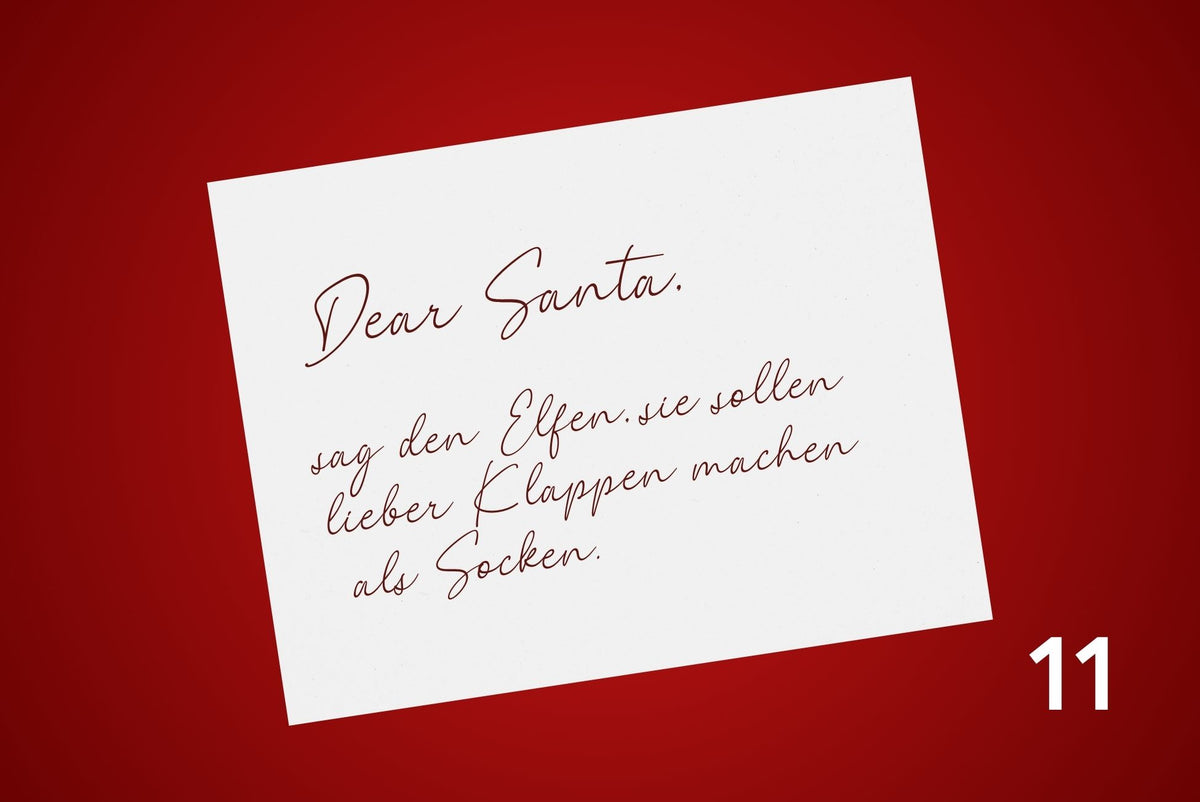 Dear Santa,
sag den Elfen, sie sollen
lieber Klappen machen
als Socken.
11